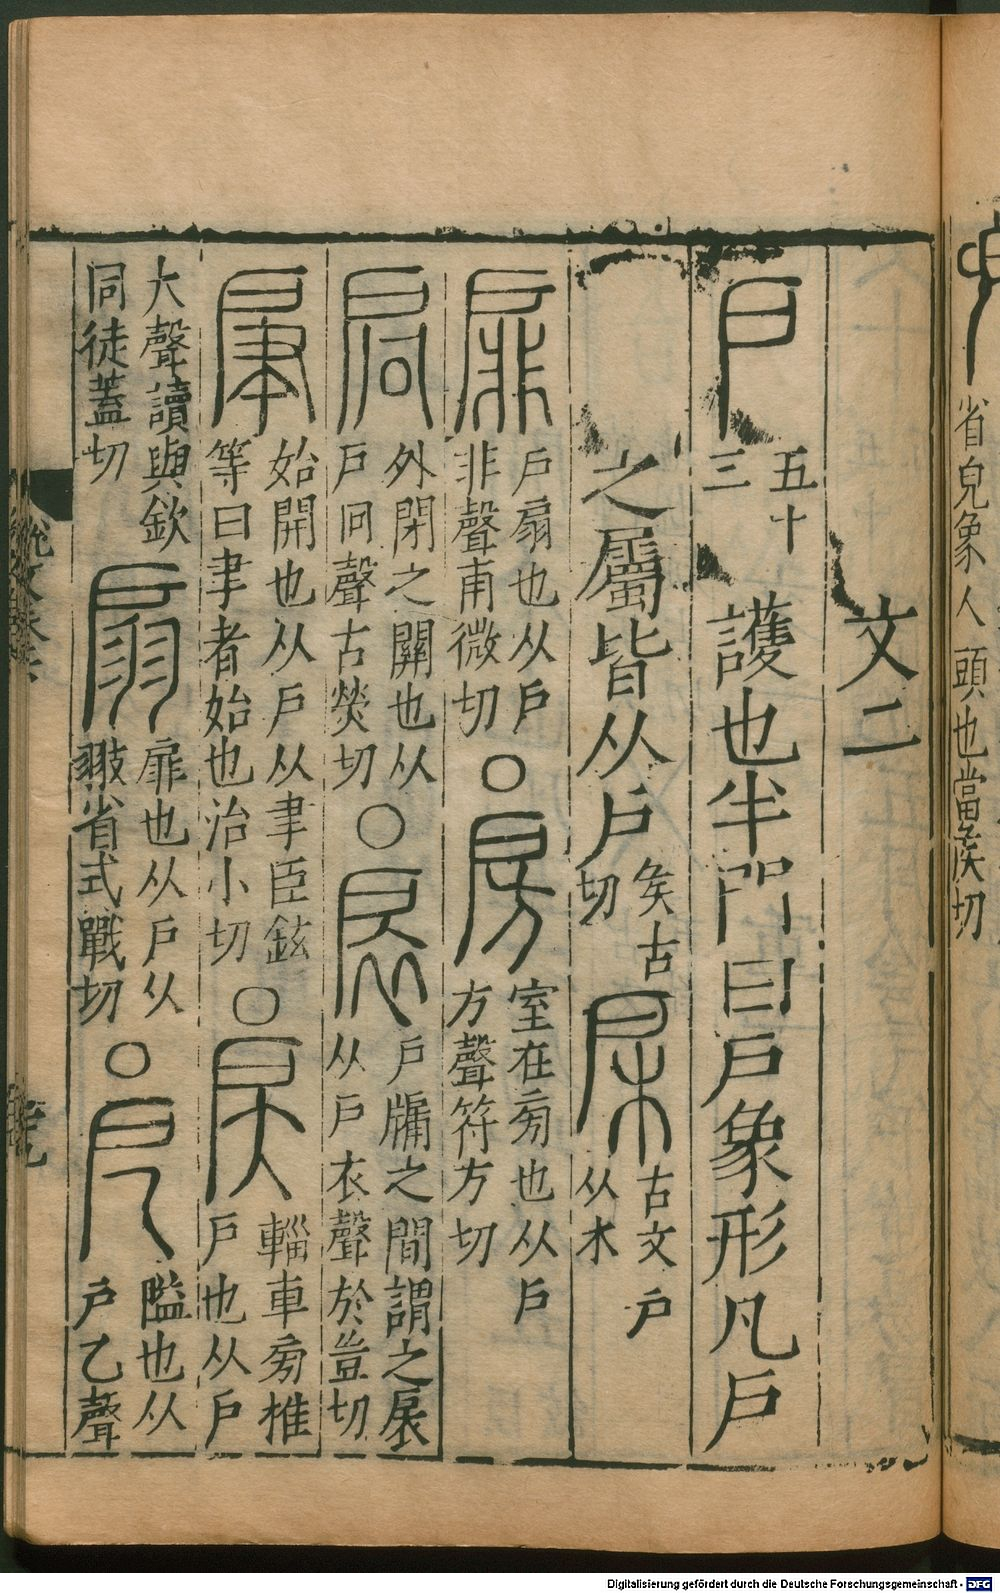 省兒象人頭也當矦切
文二
戶 五十三 護也半門曰戶象形凡戶
之屬皆从戶 矦古切 𢨤 古文戶从木
扉 戶扇也从戶非聲甫微切 ○ 房 室在旁也从戶方聲符方切
扃 外閉之關也从戶冋聲古熒切 ○ 扆 戶牖之間謂之扆从戶衣聲於豈切
肁 始開也从戶从聿臣鉉等曰聿者始也治小切 ○ 戾 輜車旁椎戶也从戶
大聲讀與釱同徒蓋切 扇 扉也从戶从翄省式戰切 ○ 戹 隘也从戶乙聲
Digitalisierung gefördert durch die Deutsche Forschungsgemeinschaft - DFG